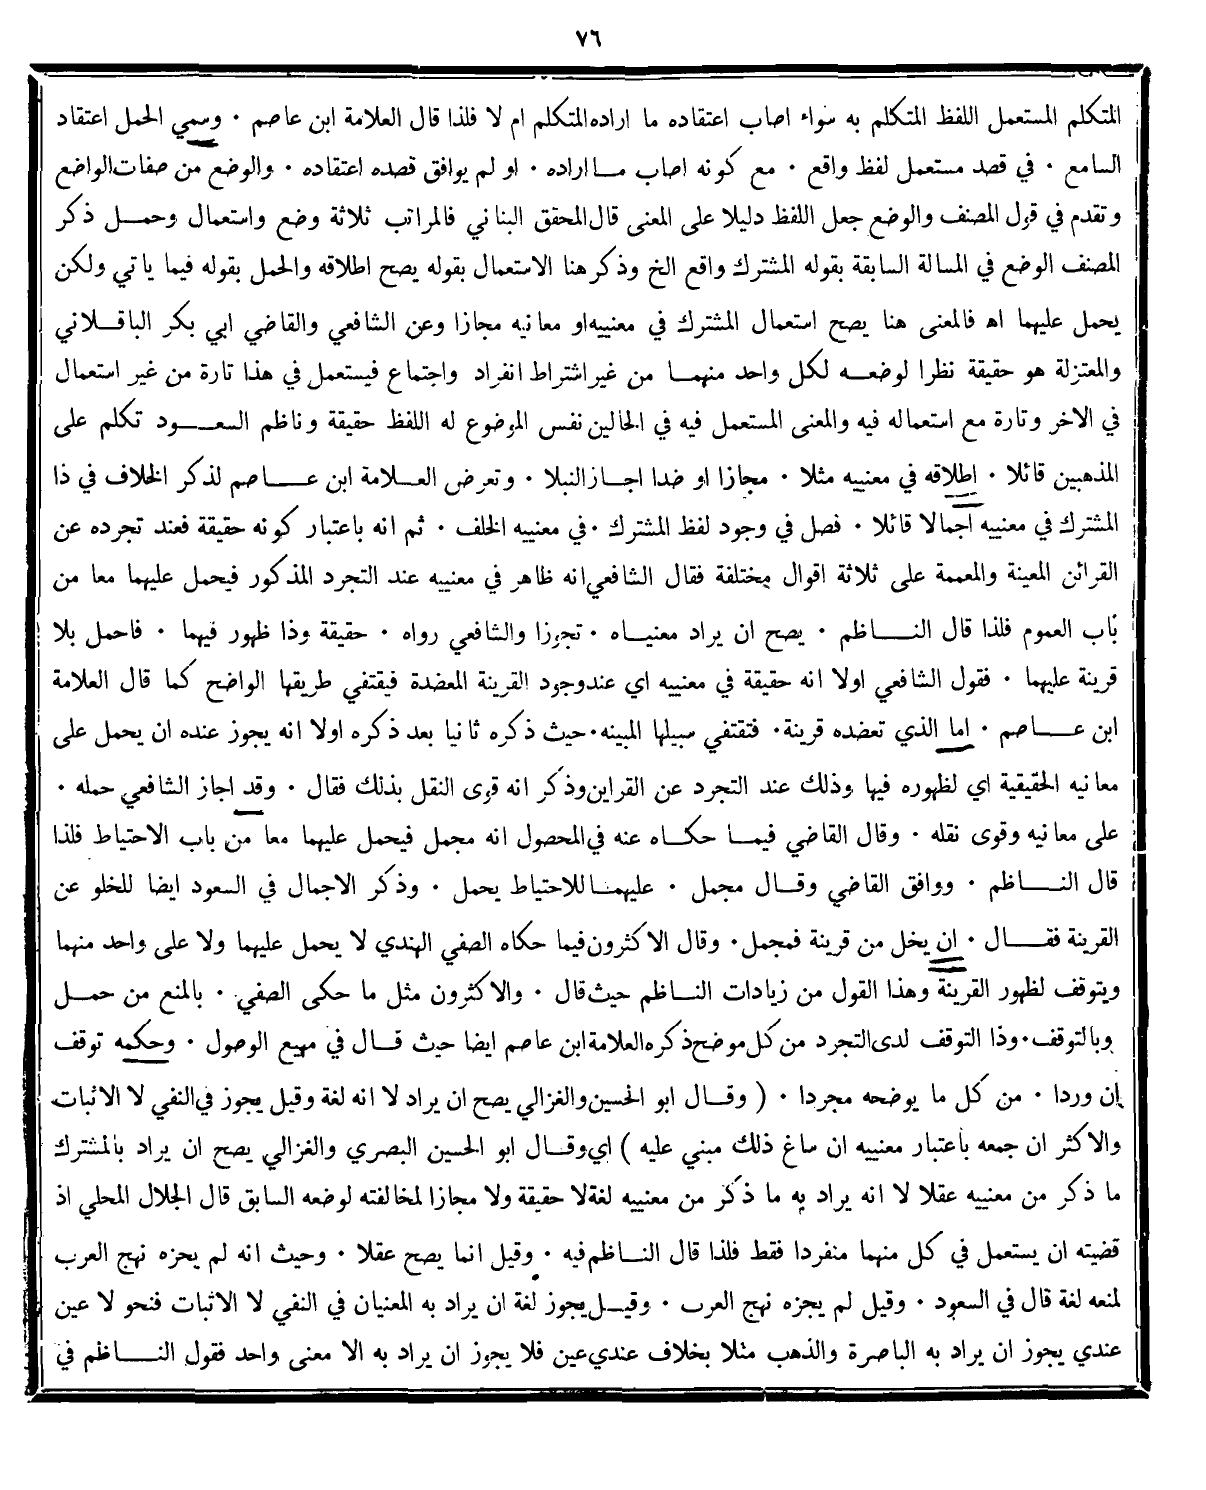 ٧٦
المتكلم المستعمل اللفظ المتكلم به سواء اصاب اعتقاده ما اراده المتكلم ام لا فلذا قال العلامة ابن عاصم ٠ وسمي الحمل اعتقاد
السامع ٠ في قصد مستعمل لفظ واقع ٠ مع كونه اصاب ما اراده ٠ او لم يوافق قصده اعتقاده ٠ والوضع من صفات الواضع
وتقدم في قول المصنف والوضع جعل اللفظ دليلا على المعنى قال المحقق البناني فالمراتب ثلاثة وضع واستعمال وحمل ذكر
المصنف الوضع في المسالة السابقة بقوله المشترك واقع الخ وذكر هنا الاستعمال بقوله يصح اطلاقه والحمل بقوله فيما ياتي ولكن
يحمل عليهما اه فالمعنى هنا يصح استعمال المشترك في معنييه او معانيه مجازا وعن الشافعي والقاضي ابي بكر الباقلاني
والمعتزلة هو حقيقة نظرا لوضعه لكل واحد منهما من غير اشتراط انفراد واجتماع فيستعمل في هذا تارة من غير استعمال
في الاخر وتارة مع استعماله فيه والمعنى المستعمل فيه في الحالين نفس الموضوع له اللفظ حقيقة وناظم السعود تكلم على
المذهبين قائلا ٠ اطلاقه في معنييه مثلا ٠ مجازا او ضدا اجاز النبلا ٠ وتعرض العلامة ابن عاصم لذكر الخلاف في ذا
المشترك في معنييه اجمالا قائلا ٠ فصل في وجود لفظ المشترك ٠ في معنييه الخلف ٠ ثم انه باعتبار كونه حقيقة فعند تجرده عن
القرائن المعينة والمعممة على ثلاثة اقوال مختلفة فقال الشافعي انه ظاهر في معنييه عند التجرد المذكور فيحمل عليهما معا من
باب العموم فلذا قال الناظم ٠ يصح ان يراد معنياه ٠ تجوزا والشافعي رواه ٠ حقيقة وذا ظهور فيهما ٠ فاحمل بلا
قرينة عليهما ٠ فقول الشافعي اولا انه حقيقة في معنييه اي عند وجود القرينة المعضدة فيقتفي طريقها الواضح كما قال العلامة
ابن عاصم ٠ اما الذي تعضده قرينة ٠ فتقتفي سبيلها المبينه ٠ حيث ذكره ثانيا بعد ذكره اولا انه يجوز عنده ان يحمل على
معانيه الحقيقية اي لظهوره فيها وذلك عند التجرد عن القراين وذكر انه قوى النقل بذلك فقال ٠ وقد اجاز الشافعي حمله ٠
على معانيه وقوى نقله ٠ وقال القاضي فيما حكاه عنه في المحصول انه مجمل فيحمل عليهما معا من باب الاحتياط فلذا
قال الناظم ٠ ووافق القاضي وقال مجمل ٠ عليهما للاحتياط يحمل ٠ وذكر الاجمال في السعود ايضا للخلو عن
القرينة فقال ٠ ان يخل من قرينة فمجمل ٠ وقال الاكثرون فيما حكاه الصفي الهندي لا يحمل عليهما ولا على واحد منهما
ويتوقف لظهور القرينة وهذا القول من زيادات الناظم حيث قال ٠ والاكثرون مثل ما حكى الصفي ٠ بالمنع من حمل
وبالتوقف ٠ وذا التوقف لدى التجرد من كل موضح ذكره العلامة ابن عاصم ايضا حيث قال في مهيع الوصول ٠ وحكمه توقف
ان وردا ٠ من كل ما يوضحه مجردا ٠ ( وقال ابو الحسين والغزالي يصح ان يراد لا انه لغة وقيل يجوز في النفي لا الاثبات
والاكثر ان جمعه باعتبار معنييه ان ساغ ذلك مبني عليه ) اي وقال ابو الحسين البصري والغزالي يصح ان يراد بالمشترك
ما ذكر من معنييه عقلا لا انه يراد به ما ذكر من معنييه لغة لا حقيقة ولا مجازا لمخالفته لوضعه السابق قال الجلال المحلي اذ
قضيته ان يستعمل في كل منهما منفردا فقط فلذا قال الناظم فيه ٠ وقيل انما يصح عقلا ٠ وحيث انه لم يجزه نهج العرب
لمنعه لغة قال في السعود ٠ وقيل لم يجزه نهج العرب ٠ وقيل يجوز لغة ان يراد به المعنيان في النفي لا الاثبات فنحو لا عين
عندي يجوز ان يراد به الباصرة والذهب مثلا بخلاف عندي عين فلا يجوز ان يراد به الا معنى واحد فقول الناظم في